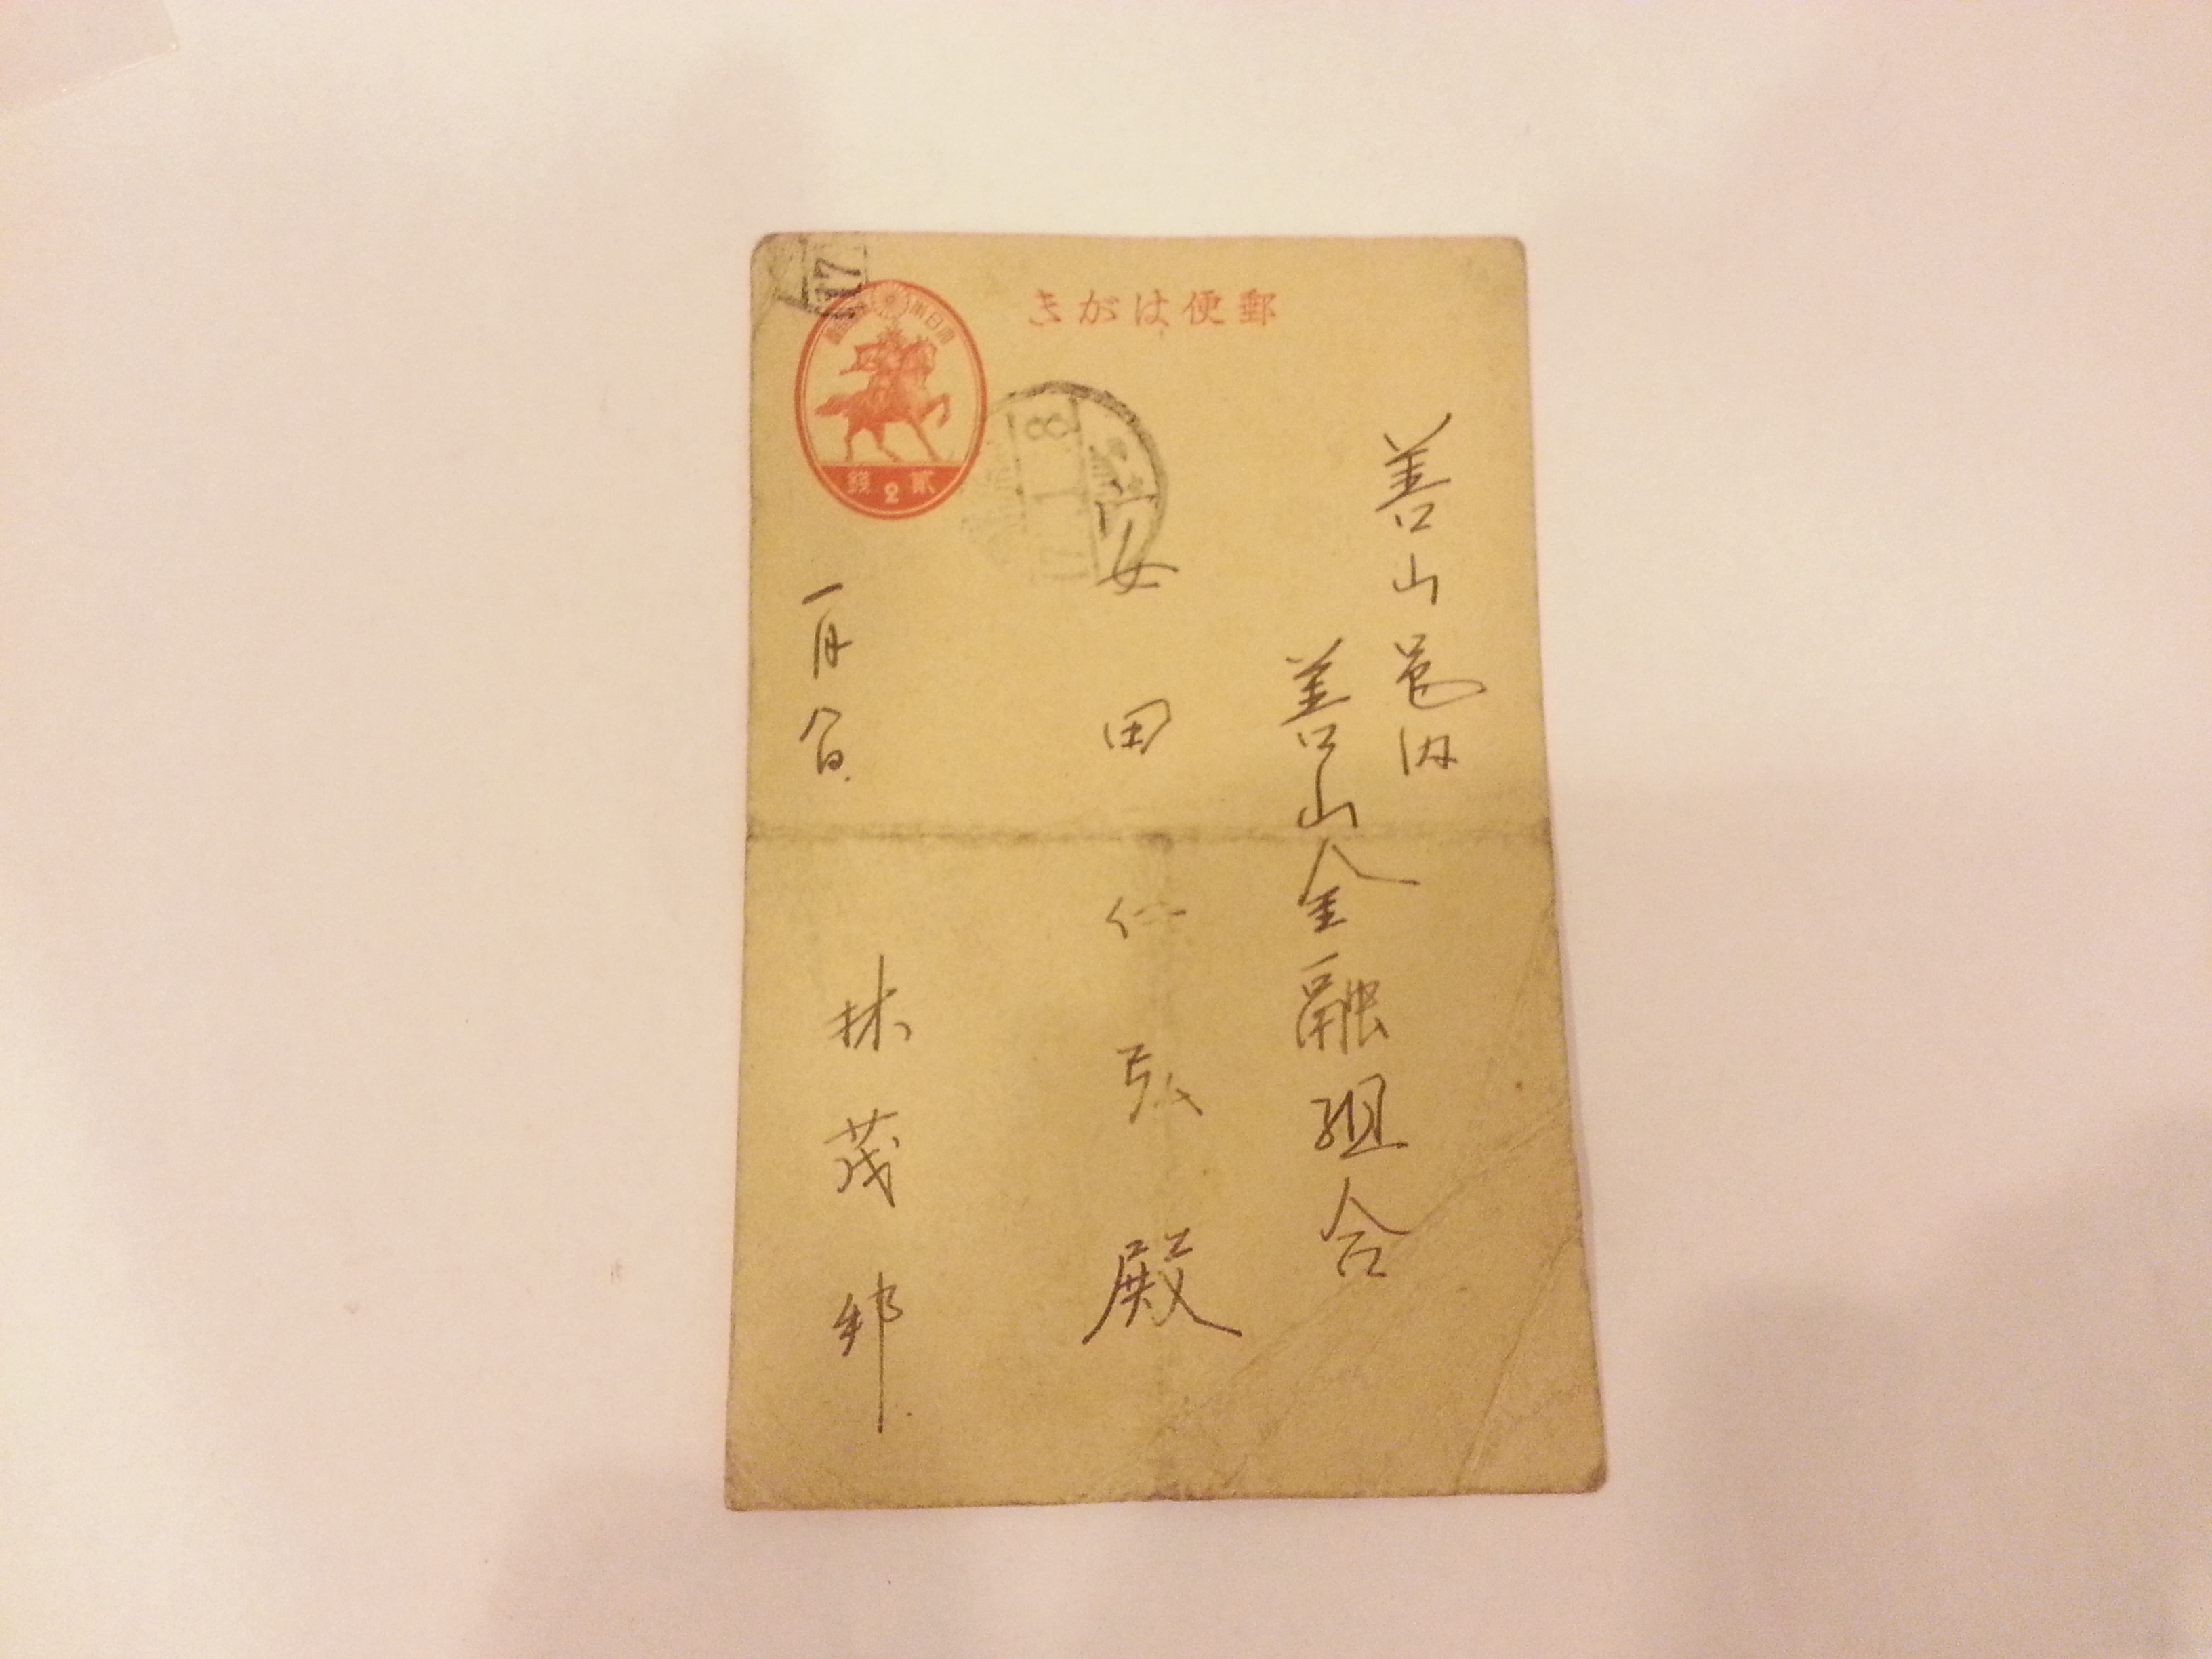 郵便はがき
大日本帝國郵便
貳2錢
17
8
1
善山邑内
善山金融組合
安田仁弘殿
一月六日
林茂邦